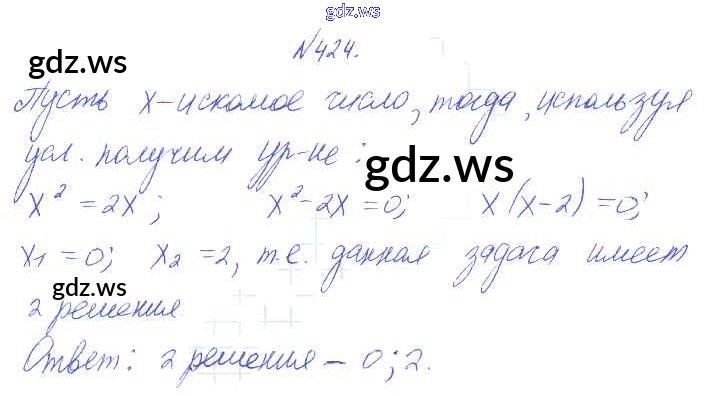 gdz.ws
№424.
gdz.ws
Пусть x-искомое число, тогда, используя
усл. получим ур-ие:
gdz.ws
x² = 2x; x²-2x=0; x(x-2)=0;
x₁=0; x₂=2, т.е. данная задача имеет
gdz.ws
2 решения.
Ответ: 2 решения – 0; 2.